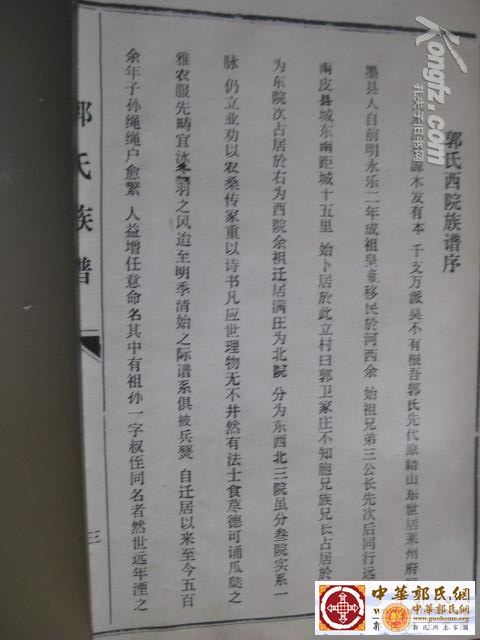 郭氏西院族谱序
源木发有本 千支万派吴不有根吾郭氏先代原籍山东世居莱州府
墨县人自前明永乐二年成祖皇帝移民於河西余 始祖兄弟三公长先次后同行远
南皮县城东南距城十五里 始卜居於此立村曰郭卫家庄不知胞兄族兄长占居於
为东院次占居於右为西院余祖迁居满庄为北院 分为东西北三院虽分叁院实系一
脉 仍立业劝以农桑传家重以诗书凡应世理物无不井然有法士食葭德可诵瓜瓞之
雅农服先畴宜泳冬羽之风迨至明季清始之际谱系俱被兵燹 自迁居以来至今五百
余年子孙绳绳户愈繁 人益增任意命名其中有祖孙一字叔侄同名者然世远年湮之
郭氏族谱
三
Kongfz.com
孔夫子旧书网
中華郭氏網
中華郭氏網
www.guohome.org
郭氏網上家園